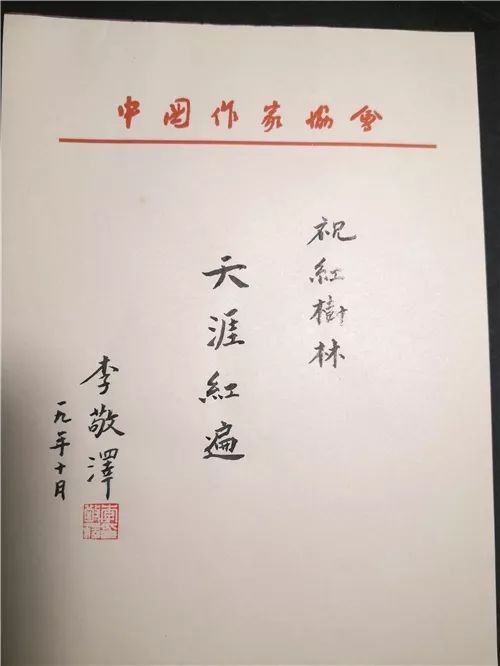 中国作家協會
祝紅樹林
天涯紅遍
李敬澤
一九年十月